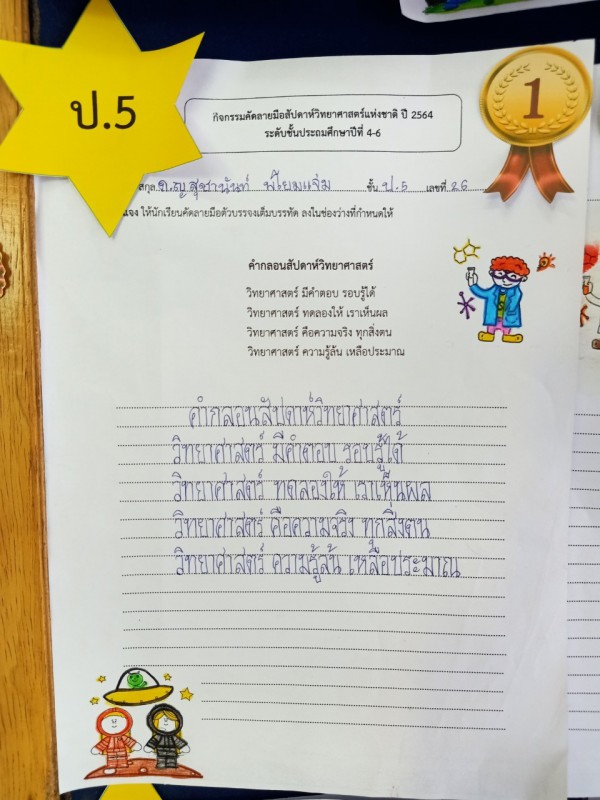 ป.5
1
กิจกรรมคัดลายมือสัปดาห์วิทยาศาสตร์แห่งชาติ ปี 2564
ระดับชั้นประถมศึกษาปีที่ 4-6
สกุล ด.ญ สุชานันท์ ชั้น ป.5 เลขที่ 26
แจง ให้นักเรียนคัดลายมือตัวบรรจงเต็มบรรทัด ลงในช่องว่างที่กำหนดให้
คำกลอนสัปดาห์วิทยาศาสตร์
วิทยาศาสตร์ มีคำตอบ รอบรู้ได้
วิทยาศาสตร์ ทดลองให้ เราเห็นผล
วิทยาศาสตร์ คือความจริง ทุกสิ่งตน
วิทยาศาสตร์ ความรู้ล้น เหลือประมาณ
คำกลอนสัปดาห์วิทยาศาสตร์
วิทยาศาสตร์ มีคำตอบ รอบรู้ได้
วิทยาศาสตร์ ทดลองให้ เราเห็นผล
วิทยาศาสตร์ คือความจริง ทุกสิ่งตน
วิทยาศาสตร์ ความรู้ล้น เหลือประมาณ